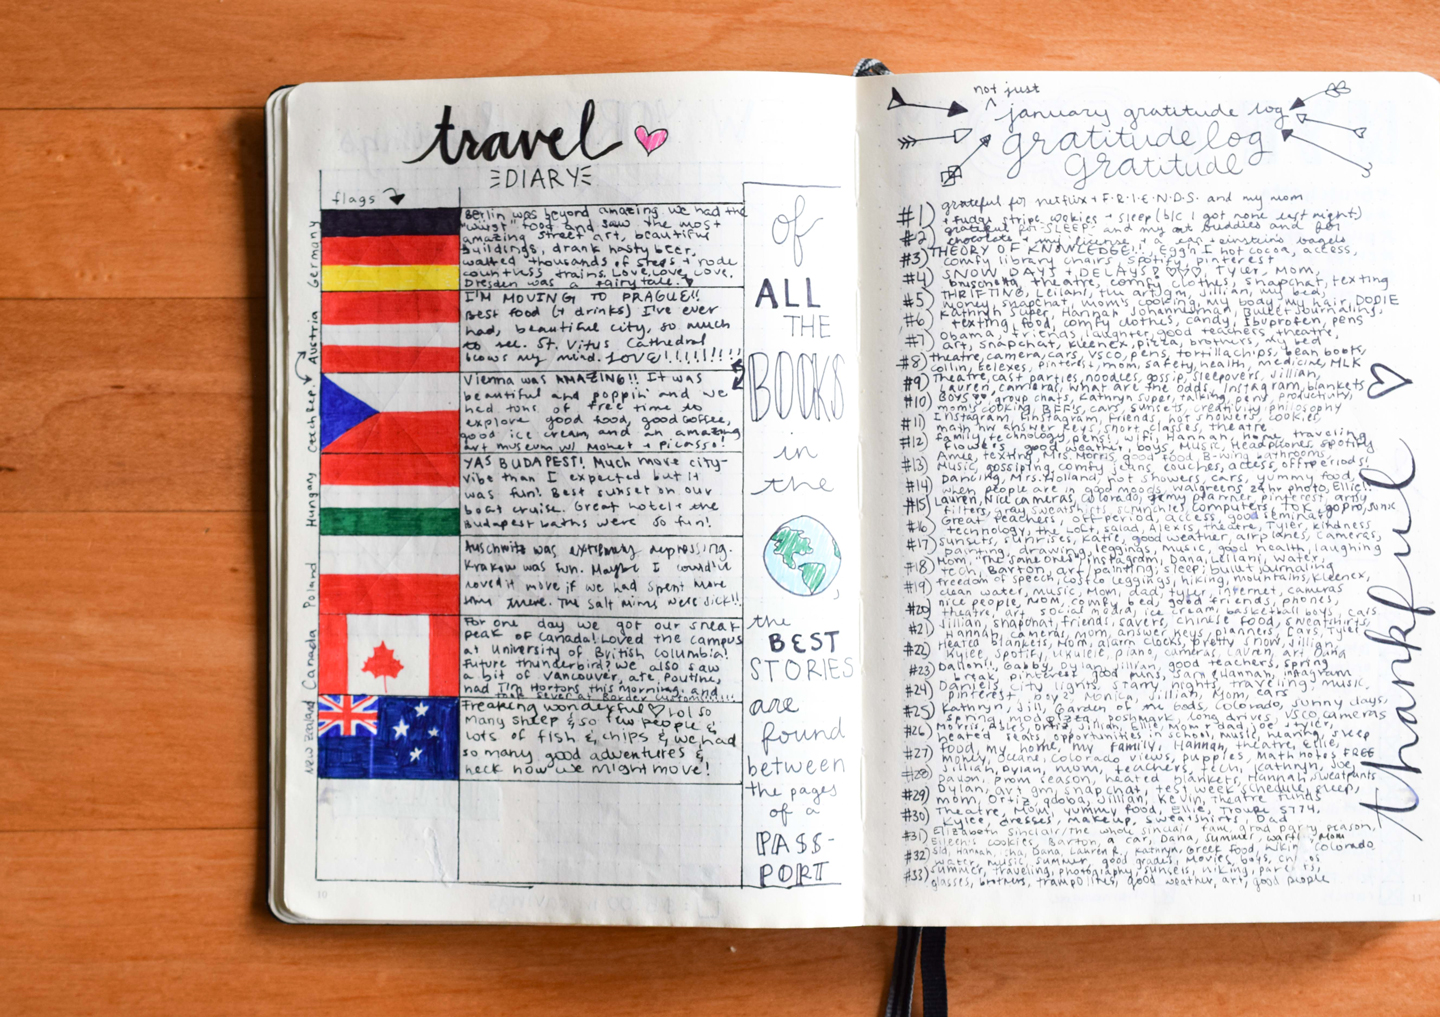 travel
DIARY
flags
Germany
Berlin was beyond amazing we had the
food and saw the most
amazing street art, beautiful
buildings, drank nasty beer,
walked thousands of steps + rode
countless trains. Love, Love, Love.
Dresden was a fairy tale.
Austria
I'M MOVING TO PRAGUE!!
Best food (+ drinks) I've ever
had, beautiful city, so much
to see. St. Vitus Cathedral
blows my mind. LOVE!!!!!!!!!
Czech Rep.
Vienna was AMAZING!! It was
beautiful and poppin' and we
had tons of free time to
explore good food, good coffee,
good ice cream and an amazing
art museum w/ Monet + Picasso!
Hungary
YAS BUDAPEST! Much more city-
vibe than I expected but it
was fun! Best sunset on our
boat cruise. Great hotel + the
Budapest baths were so fun!
Poland
Auschwitz was extremely depressing.
Krakow was fun. Maybe I would've
loved it more if we had spent more
time there. The Salt Mines were sick!!
Canada
For one day we got our sneak
peak of Canada! Loved the campus
at University of British Columbia!
Future thunderbird? We also saw
a bit of Vancouver, ate Poutine,
had Tim Hortons this morning. and
New Zealand
Freaking wonderful Lol so
Many sheep & so few people &
lots of fish & chips & we had
so many good adventures &
heck now we might move!
of
ALL
THE
BOOKS
in
the
the
BEST
STORIES
are
found
between
the pages
of a
PASS-
PORT
10
not just
^ january gratitude log
gratitude log
Gratitude
#1) grateful for netflix + F.R.I.E.N.D.S. and my mom
+ fudge stripe cookies + sleep (b/c I got none last night)
#2) grateful for SLEEP and my art buddies and for
chocolate + einstein's bagels
#3) THEORY OF KNOWLEDGE!, hot cocoa, access,
comfy library chairs, spotify, pinterest
#4) SNOW DAYS + DELAYS! Tyler, Mom,
bruschetta, theatre, comfy clothes, snapchat, texting
#5) THRIFTING, Leilani, art, Jillian, my bed,
money, snapchat, mom's cooking, my body, my hair, DODIE
#6) Kathryn Super, Hannah Johannsman, Bullet Journaling,
texting, food, comfy clothes, candy, Ibuprofen, pens
#7) Obama, friends, laughing, good teachers, theatre,
art, snapchat, kleenex, pizza, brothers, my bed
#8) theatre, camera, cars, VSCO, pens, tortilla chips, bean boots,
colin, pinterest, mom, safety, health, medicine, MLK
#9) Theatre, cast parties, noodles, gossip, sleepovers, Jillian,
Lauren, cameras, what are the odds, Instagram, blankets
#10) Boys, group chats, Kathryn Super, talking, peny, productivity,
mom's cooking, BFF's, cars, sunsets, creativity, philosophy
#11) Instagram, friends, showers, cookies
math hw answer keys, short classes, theatre
#12) family, technology, pens!, wifi, Hannah, home, traveling
flowers, good weather, boys, Music, Headphones, spotify
#13) Amie, texting, Mrs. Morris, good food, B-wing bathrooms,
Music, gossiping, comfy jeans, couches, access, offperiods!
#14) Dancing, Mrs. Holland, hot showers, cars, yummy food,
when people are in good moods, walgreens 24hr photo, Ellie!!
#15) Lauren, Nice cameras, Colorado, my planner, pinterest, artsy
filters, gray sweatshirts, scrunchies, computers, TOK, gopro, sonic
#16) Great teachers, off period, access, good
technology, Alexis, theatre, Tyler, kindness
#17) sunsets, sunrises, Katie, good weather, airplanes, cameras,
painting, drawing, leggings, music, good health, laughing
#18) Mom, "The same ones", Instagram, Dana, Leilani, water,
tech, Barton, art, painting, sleep, bullet journaling
#19) freedom of speech, costco leggings, hiking, mountains, Kleenex,
clean water, music, Mom, dad, tyler, internet, cameras
#20) nice people, MOM, comfy bed, good friends, phones,
theatre, art, social media, ice cream, basketball boys, cars
#21) Jillian, snapchat, friends, savers, chinese food, sweatshirts,
Hannah, cameras, mom, answer keys, planners, Cars, Tyler
#22) Heated blankets, Mom, alarm clocks, pretty snow, Jillian,
Kylee, Spotify, ukulele, piano, cameras, Lauren, art, gina
#23) Dallon!!, Gabby, Dylan, Jillian, good teachers, spring
break, pinterest, good puns, Sara, Hannah, instagram
#24) Daniels, city lights, starry nights, traveling, music,
pinterest, boys, Monica, Jillian, Mom, cars
#25) Kathryn, Jill, Garden of the Gods, Colorado, sunny days,
spring, mod pizza, poshmark, long drives, VSCO, cameras
#26) Morris, Mom, dad, Tyler,
heated seats, opportunities in school, music, hearing, sleep
#27) food, my home, my family, Hannah, theatre, Ellie,
money, ocean, Colorado views, puppies, Math notes, FREE
#28) Jillian, Dylan, mom, teachers, tech, Kathryn, Sue,
Davon, prom season, heated blankets, Hannah, sweatpants
#29) Dylan, art gm, snapchat, test week schedule, sleep,
mom, Ortiz, qdoba, Jillian, Kevin, theatre funds
#30) Theatre, Mom, yummy food, Ellie, Troupe 5774,
Kylee, dresses, makeup, sweatshirts, Dad
#31) Elizabeth Sinclair/the whole Sinclair fam, grad party season,
Eileen's cookies, Barton, a car, Dana, summer, Mom
#32) Sid, Hannah, Dana, Lauren R., Kathryn, Greek food, hikin' Colorado
water, music, summer, good grades, movies, boys
#33) summer, traveling, photography, sunsets, hiking, parents,
glasses, brothers, trampolines, good weather, art, good people
thankful
11